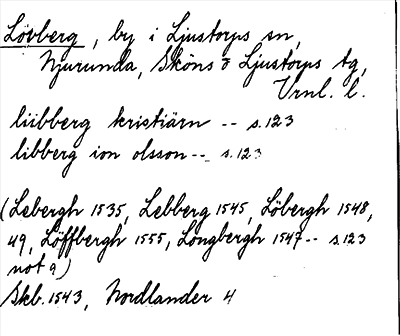 Lövberg, by i Ljustorps sn,
Njurunda, Sköns o Ljustorps tg,
Vrnl. l.
liibberg kristiärn -- s. 123
libberg ion olsson -- s. 123
(Lebergh 1535, Lebberg 1545, Löbergh 1548,
49, Löffbergh 1555, Longbergh 1547 -- s 123
not 9)
Skb. 1543, Nordlander 4